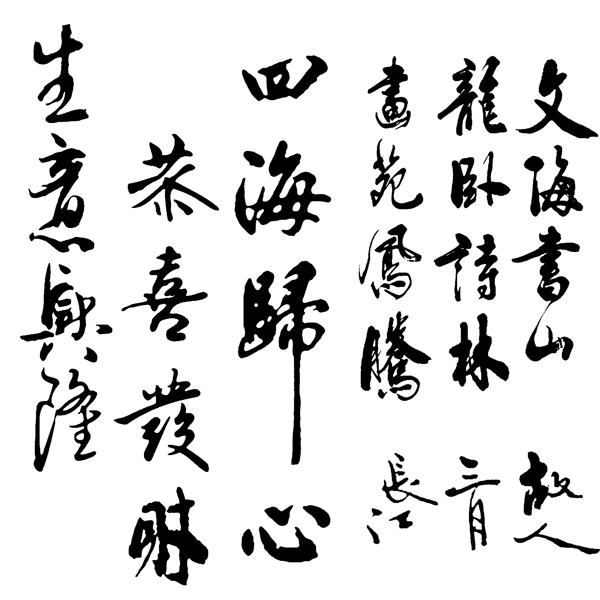 文海書山
龍卧詩林
畫苑鳳騰
故人
三月
長江
四海歸心
恭喜發財
生意興隆